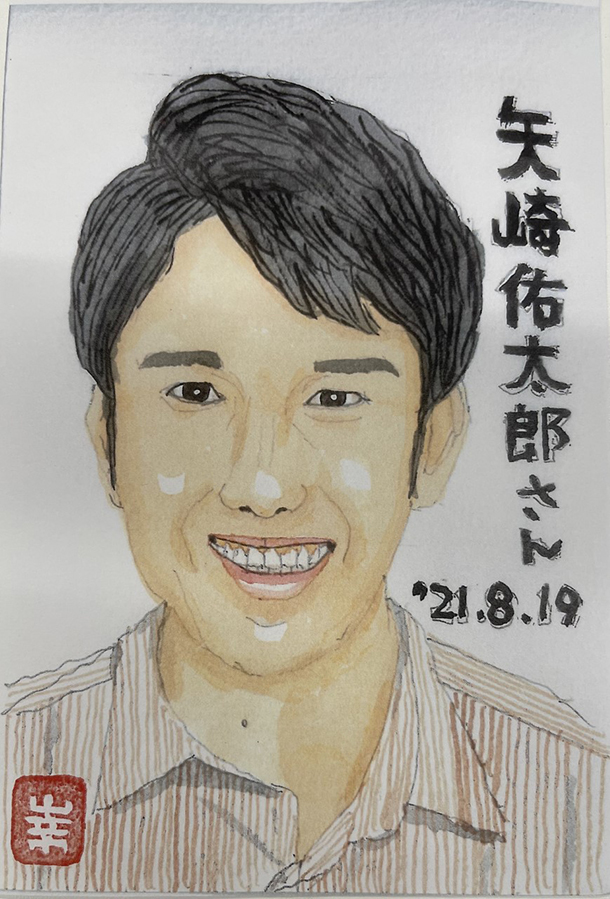 矢崎佑太郎さん
'21.8.19
幸